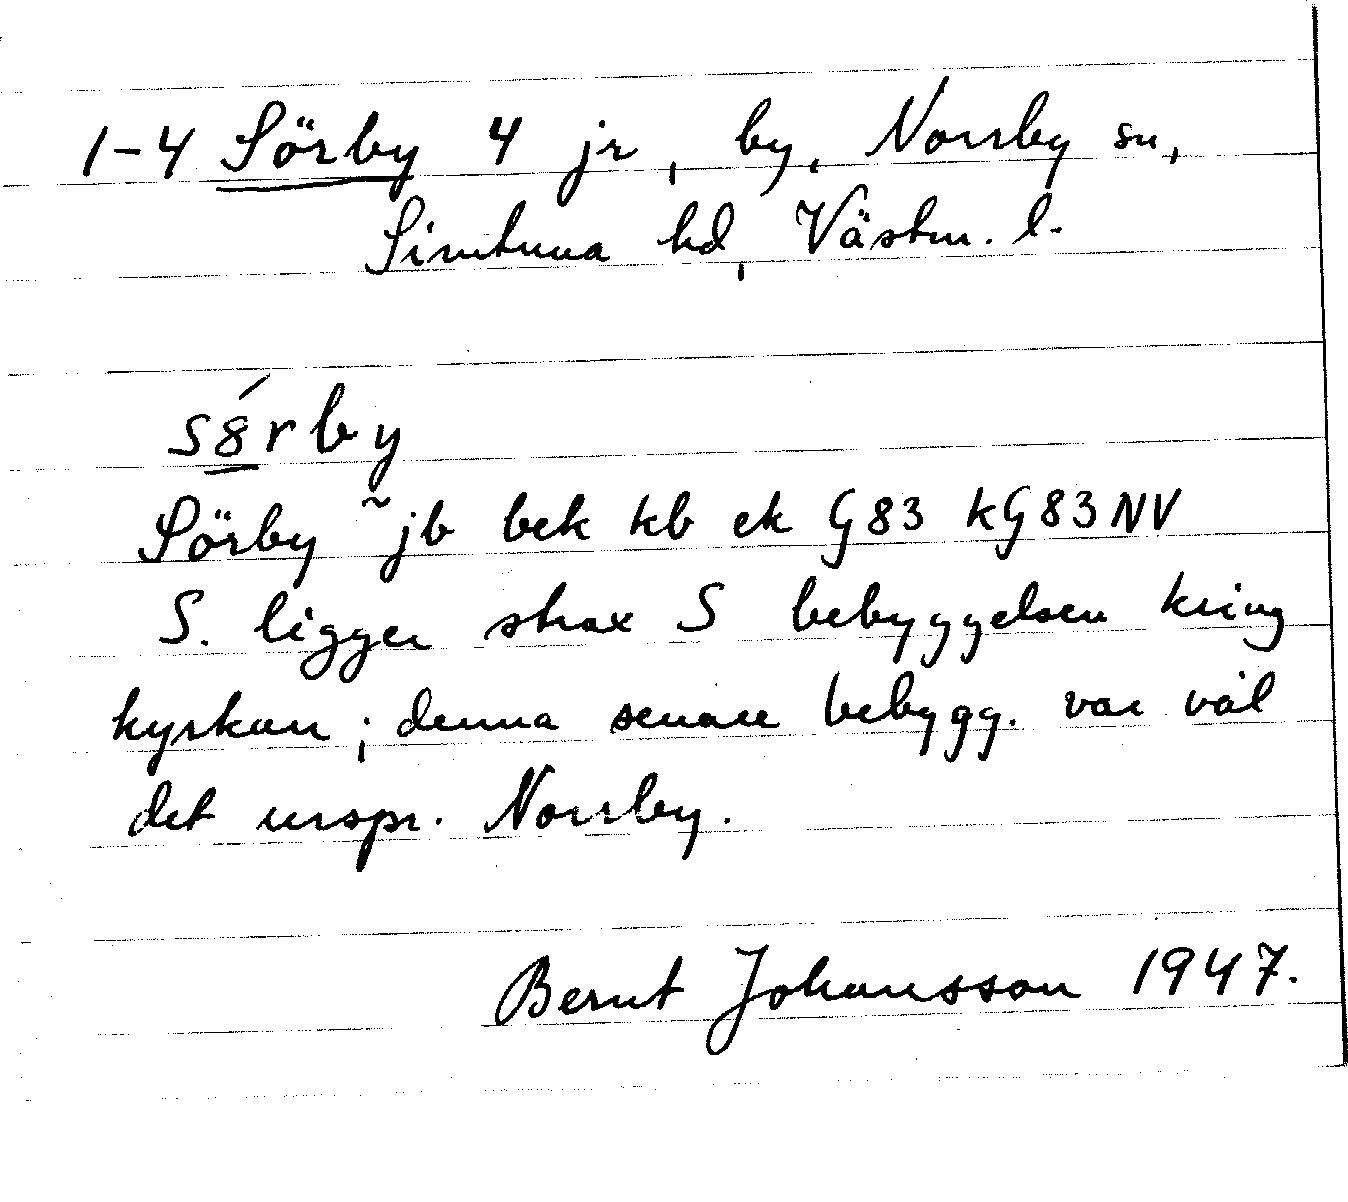 1-4 Sörby 4 jr, by, Norrby sn,
Simtuna hd, Västm. l.
s8́rby
Sörby ~ jb bek kb ek G83 kG83NV
S. ligger strax S bebyggelsen kring
kyrkan; denna senare bebygg. var väl
det urspr. Norrby.
Bernt Johansson 1947.